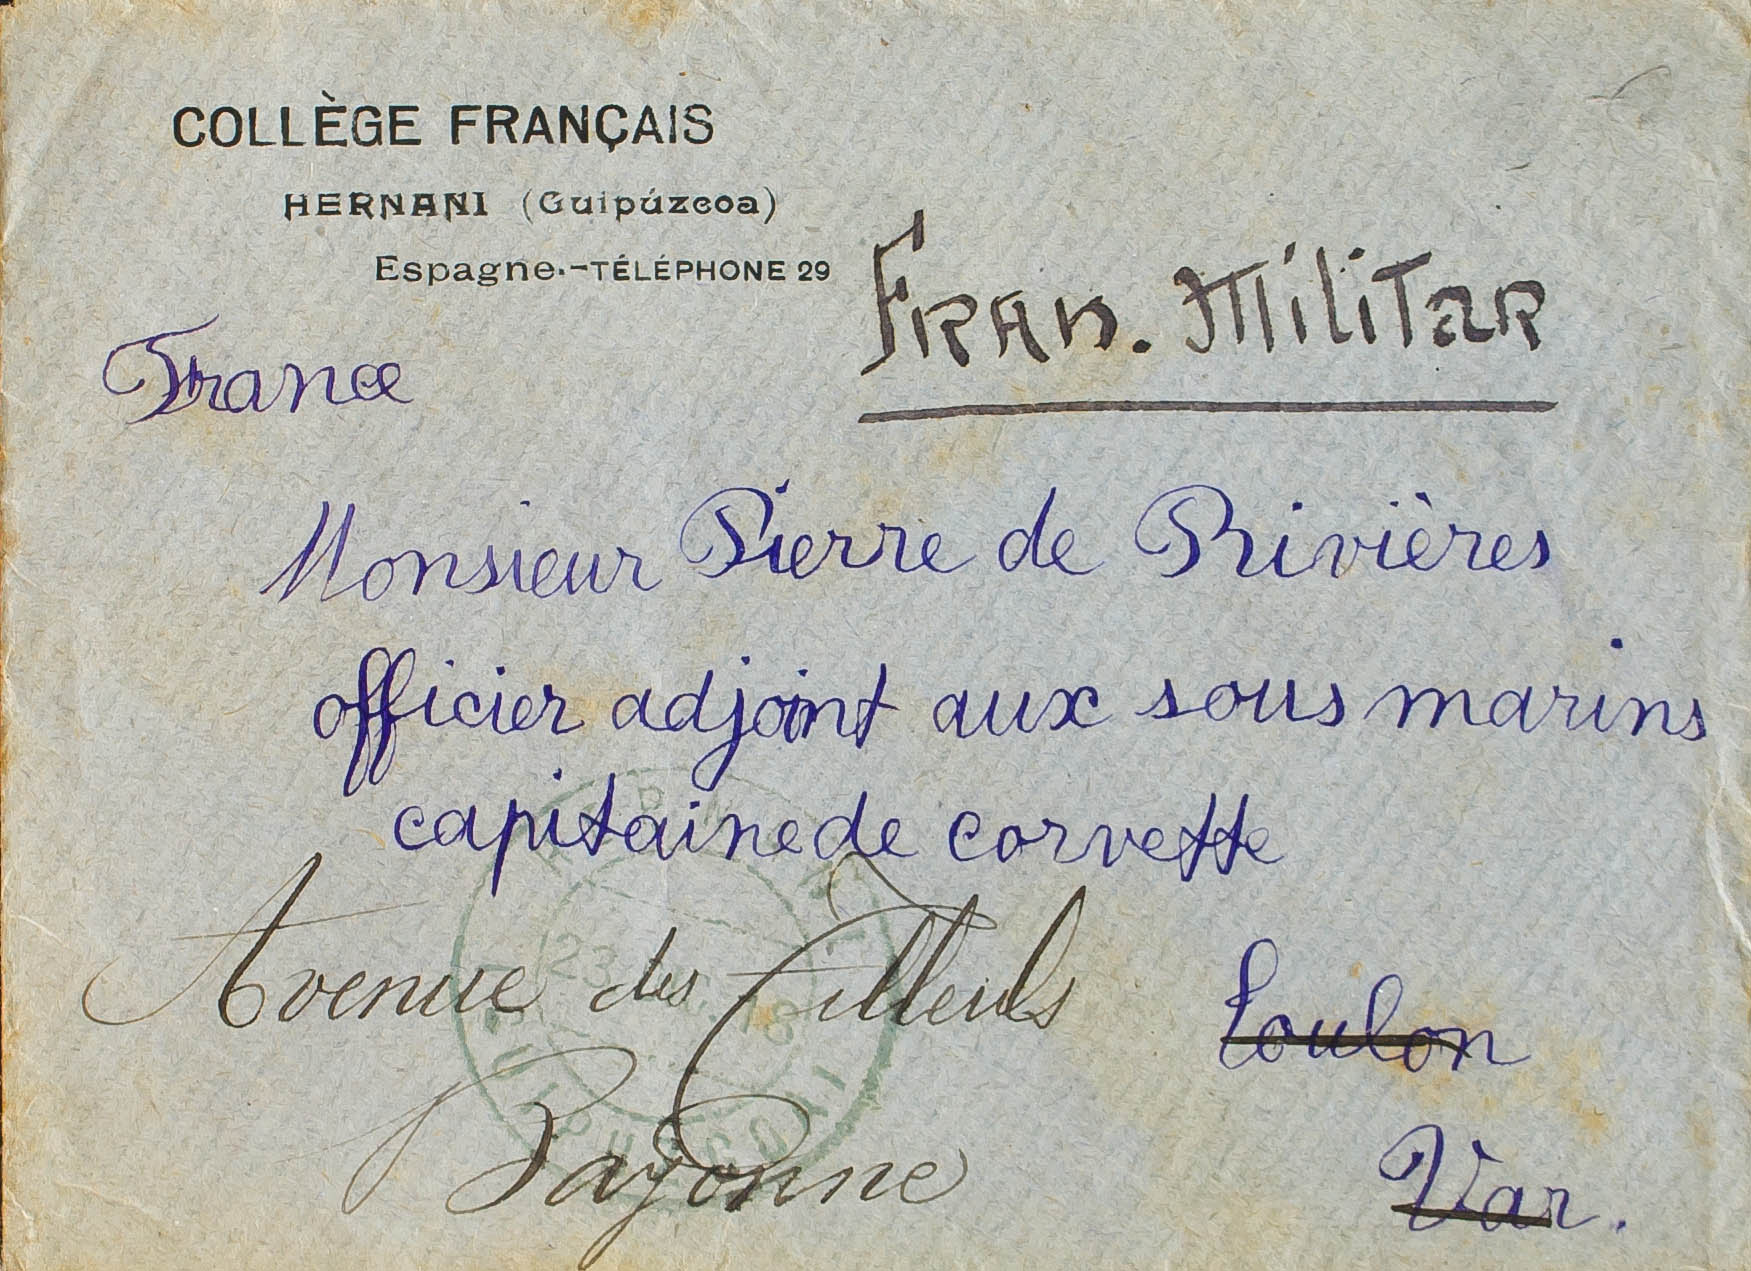 COLLÈGE FRANÇAIS
HERNANI (Guipúzcoa)
Espagne.-TÉLÉPHONE 29
Fran. Militar
France
Monsieur Pierre de Rivières
officier adjoint aux sous marins
capitaine de corvette
Avenue des Tilleuls
Toulon
Bayonne
Var.
23